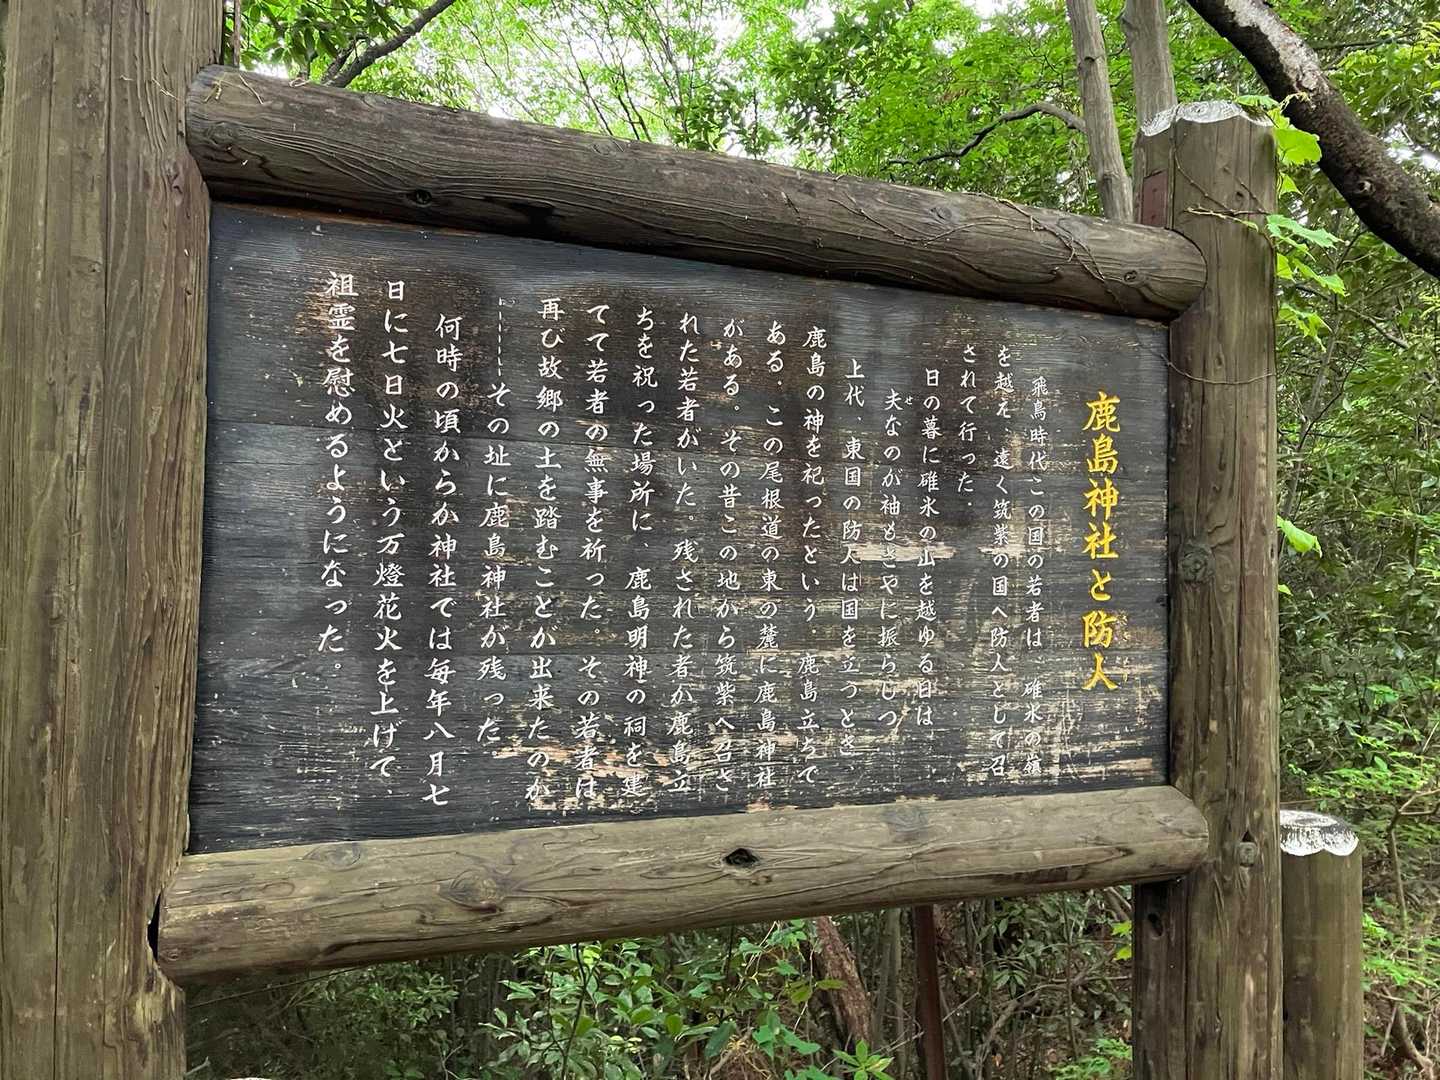 鹿島神社と防人
飛鳥時代この国の若者は、碓氷の嶺
を越え、遠く筑紫の国へ防人として召
されて行った.
日の暮に碓氷の山を越ゆる日は
夫なのが袖もさやに振らしつ
せ
上代、東国の防人は国を立つとき、
鹿島の神を祀ったという. 鹿島立ちで
ある. この尾根道の東の麓に鹿島神社
がある。その昔この地から筑紫へ召さ
れた若者がいた。残された者が鹿島立
ちを祝った場所に、鹿島明神の祠を建
てて若者の無事を祈った。その若者は
再び故郷の土を踏むことが出来たのか
……その址に鹿島神社が残った.
何時の頃からか神社では毎年八月七
日に七日火という万燈花火を上げて、
祖霊を慰めるようになった。